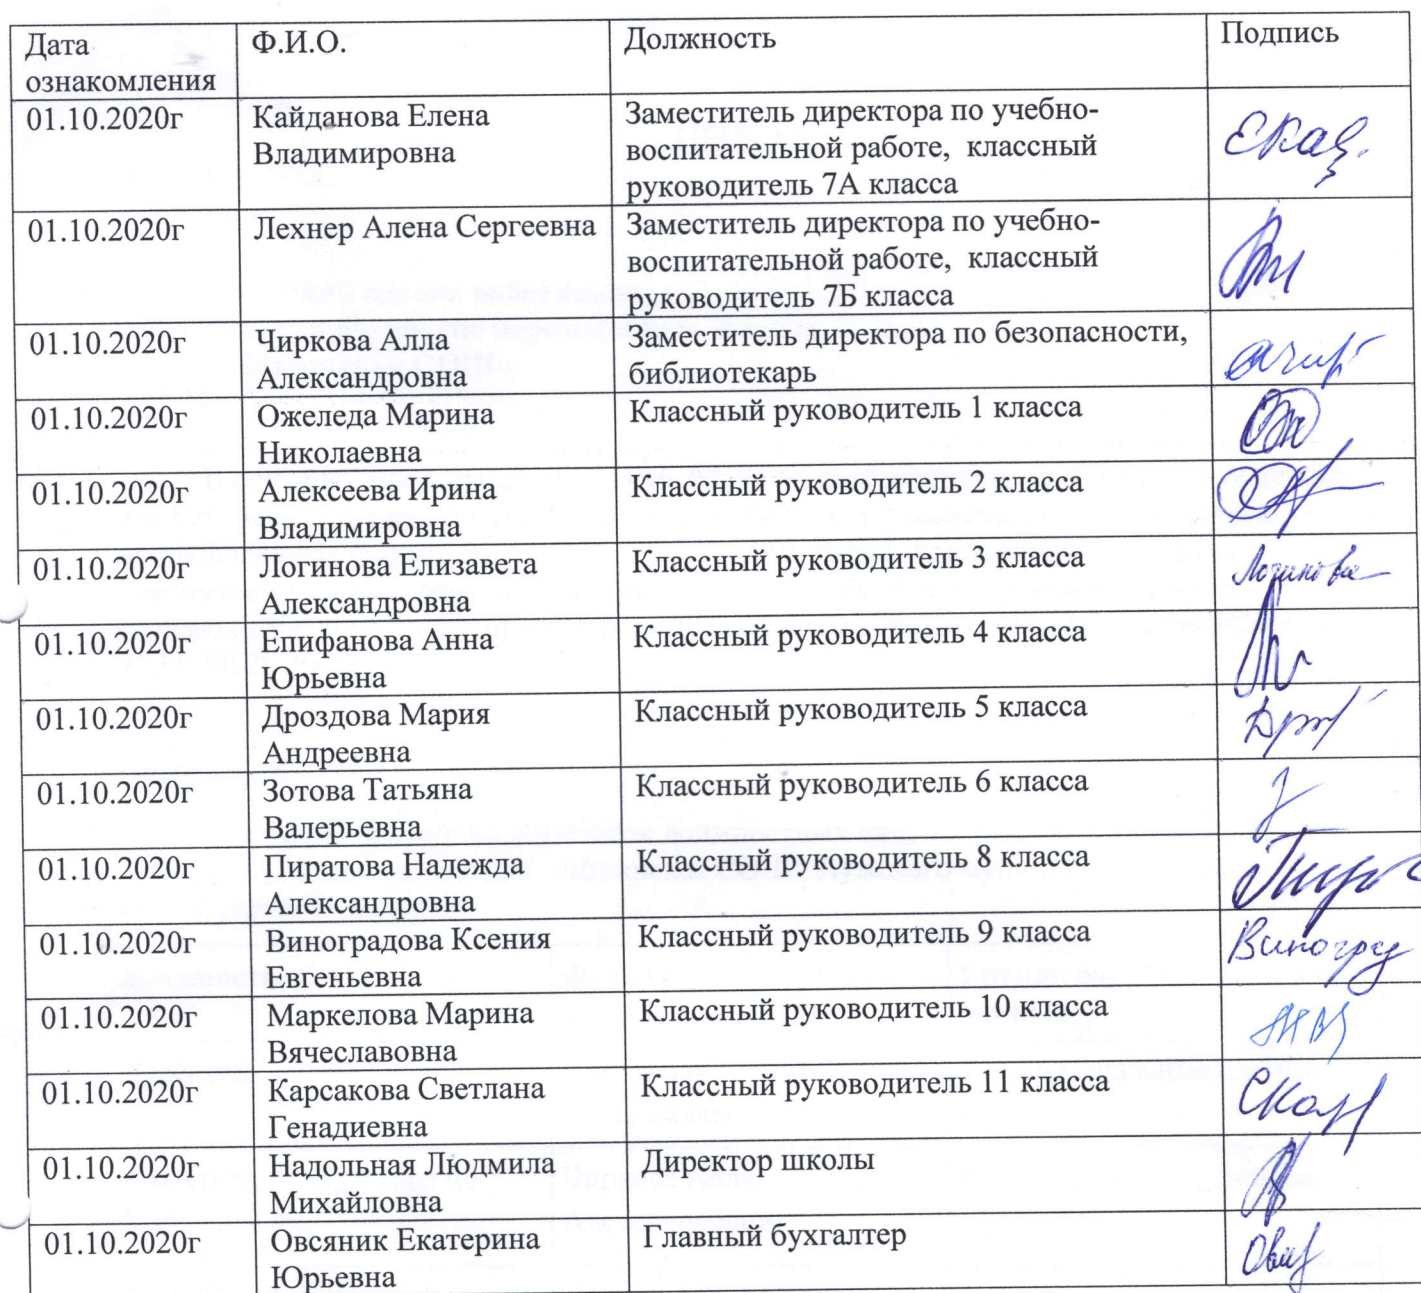 Дата
ознакомления
Ф.И.О.
Должность
Подпись
01.10.2020г
Кайданова Елена
Владимировна
Заместитель директора по учебно-
воспитательной работе, классный
руководитель 7А класса
01.10.2020г
Лехнер Алена Сергеевна
Заместитель директора по учебно-
воспитательной работе, классный
руководитель 7Б класса
01.10.2020г
Чиркова Алла
Александровна
Заместитель директора по безопасности,
библиотекарь
01.10.2020г
Ожеледа Марина
Николаевна
Классный руководитель 1 класса
01.10.2020г
Алексеева Ирина
Владимировна
Классный руководитель 2 класса
01.10.2020г
Логинова Елизавета
Александровна
Классный руководитель 3 класса
Логинова
01.10.2020г
Епифанова Анна
Юрьевна
Классный руководитель 4 класса
01.10.2020г
Дроздова Мария
Андреевна
Классный руководитель 5 класса
01.10.2020г
Зотова Татьяна
Валерьевна
Классный руководитель 6 класса
01.10.2020г
Пиратова Надежда
Александровна
Классный руководитель 8 класса
01.10.2020г
Виноградова Ксения
Евгеньевна
Классный руководитель 9 класса
01.10.2020г
Маркелова Марина
Вячеславовна
Классный руководитель 10 класса
01.10.2020г
Карсакова Светлана
Генадиевна
Классный руководитель 11 класса
01.10.2020г
Надольная Людмила
Михайловна
Директор школы
01.10.2020г
Овсяник Екатерина
Юрьевна
Главный бухгалтер